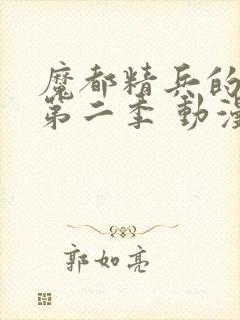 魔都精兵的
第二季 動漫
郭如亮